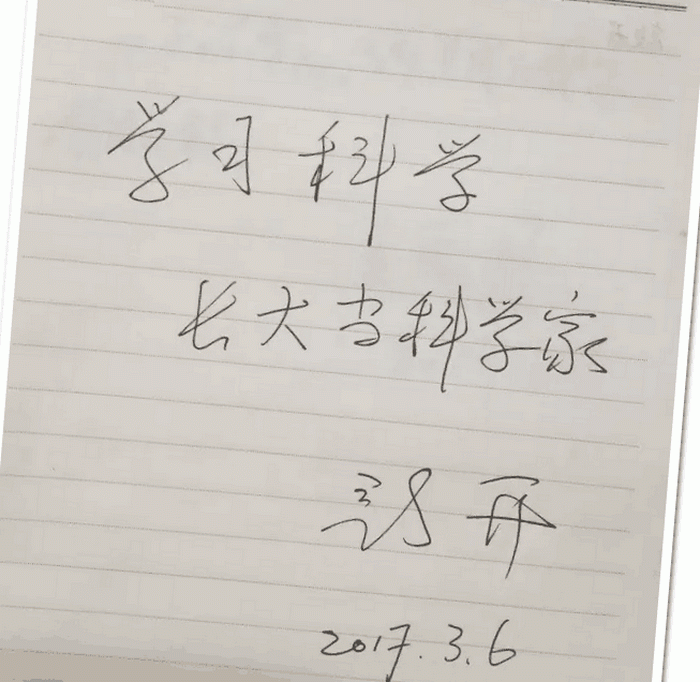 学习科学
长大当科学家
开
2017.3.6